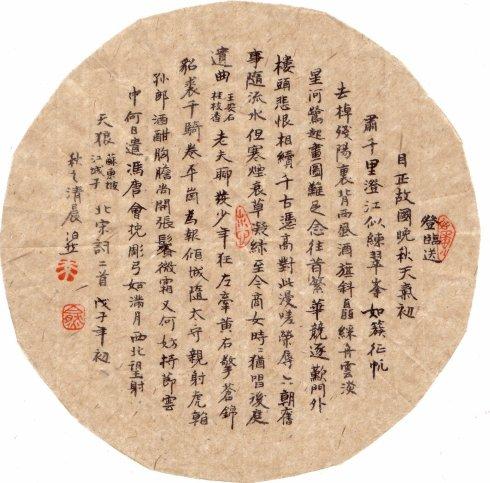 登臨送
目正故國晚秋天氣初
肅千里澄江似練翠峯如簇征帆
去棹殘陽裏背西風酒旗斜矗綵舟雲淡
星河鷺起畫圖難足念往昔繁華競逐歎門外
樓頭悲恨相續千古憑高對此漫嗟榮辱六朝舊
事隨流水但寒煙衰草凝綠至今商女時〻猶唱後庭
遺曲 王安石 桂枝香 老夫聊發少年狂左牽黃右擎蒼錦
貂裘千騎卷平崗為報傾城隨太守親射虎
孫郎酒酣胸膽尚開張鬢微霜又何妨持節雲
中何日遣馮唐會挽彫弓如滿月西北望射
天狼 蘇東坡 江城子 北宋詞二首 戊子年初
秋之清晨